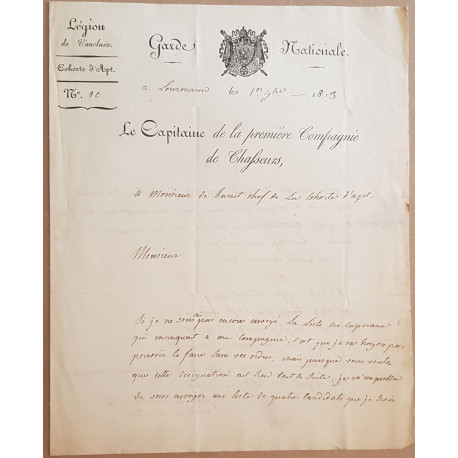 Légion
de Vaucluse.
Cohorte d'Apt.
N.º 10
Garde Nationale.
a Lourmarin les 1er 9bre 1813
Le Capitaine de la première Compagnie
de Chasseurs,
a Monsieur de chef de La Cohorte d'apt.
Monsieur
Si je ne vous ai pas encore envoyé La Liste des caporaux
qui manquent a ma compagnie, c'est que je ne croyois pas
pouvoir le faire sans vos ordres, mais puisque vous voulez
que cette désignation ait lieu tout de suite, je
de vous envoyer une Liste de quatre candidats que je crois